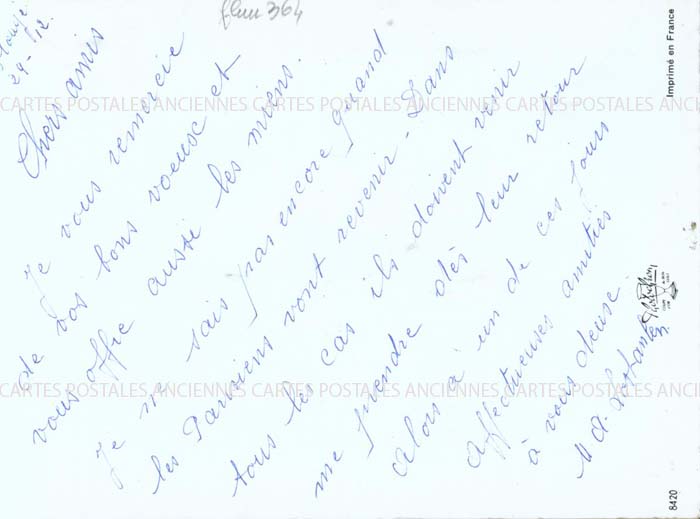 29-12
Chers amis
Je vous remercie
de vos bons voeux et
vous offre aussi les miens.
Je ne sais pas encore quand
les Parisiens vont revenir - Dans
tous les cas ils doivent venir
me prendre dès leur retour
alors à un de ces jours
affectueuses amitiés
à vous deux
364
CARTES POSTALES ANCIENNES CARTES POSTALES ANCIENNES CARTES POSTALES ANCIENNES
CARTES POSTALES ANCIENNES CARTES POSTALES ANCIENNES CARTES POSTALES ANCIENNES
Imprimé en France
8420